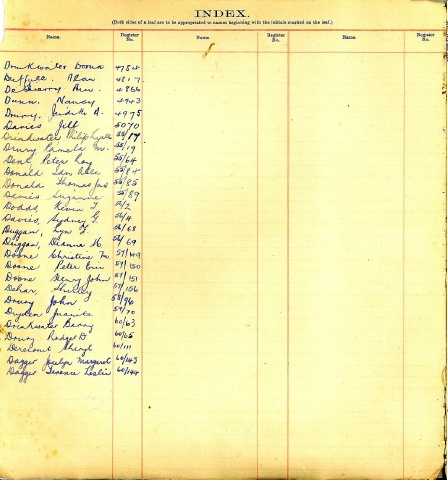 INDEX.
(Both sides of a leaf are to be appropriated to names beginning with the initials marked on the leaf.)
Name. Register No. Name. Register No. Name. Register No.
Drinkwater Donna 4784
Duffill. Alan 4817.
Ann. 4866
Dunn. Nancy 4943
Drury, Judith A. 4975
Davies Jill 5070
Drinkwater Philip 55/17
Drury Pamela M. 55/19
Dent Peter Roy 55/64
Donald Ian Alex 55/84
Donald Thomas Jas 55/85
Davies Suzanne 55/89
Dodds, Kevin J. 56/2
Davies, Sydney G. 56/4
Duggan, Lyn J. 56/68
Duggan, Dianna H. 56/69
Doone Christine M. 57/149
Doone Peter Eric 57/150
Doone Henry John 57/151
Dehar, Shirley 57/156
Drury John 58/96
Dryden Juanita 59/70
Drinkwater Barry 60/63
Drury Rodger D 60/65
Derecourt Sheryl 60/111
Dagger Joclyn Margaret 60/143
Dagger Terence Leslie 60/144